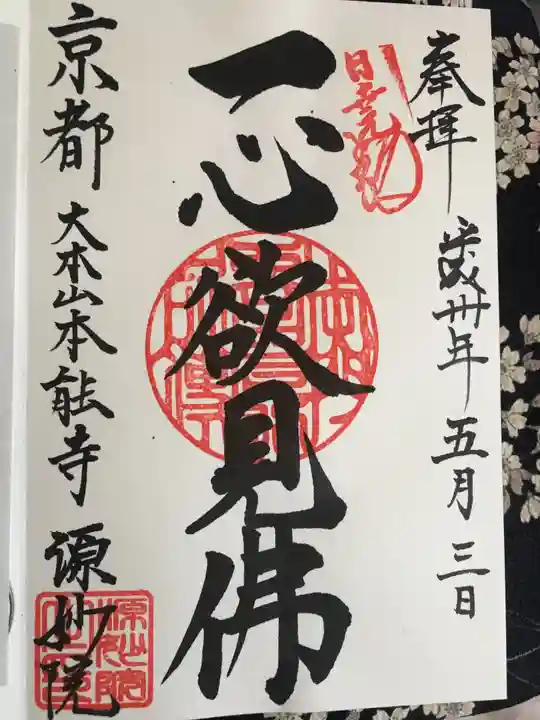 奉拝
平成卅年五月三日
一心欲見佛
京都 大本山本能寺 源妙院
源妙院